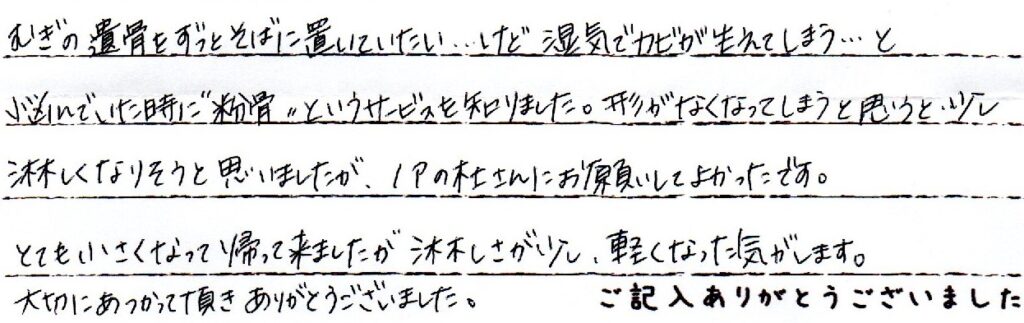 むぎの遺骨をずっとそばに置いていたい…けど 湿気でカビが生えてしまう…と
悩んでいた時に"粉骨"というサービスを知りました。形がなくなってしまうと思うと、少し
淋しくなりそうと思いましたが、ノアの杜さんにお願いしてよかったです。
とても小さくなって帰って来ましたが 淋しさが少し、軽くなった気がします。
大切にあつかって頂き ありがとうございました。 ご記入ありがとうございました